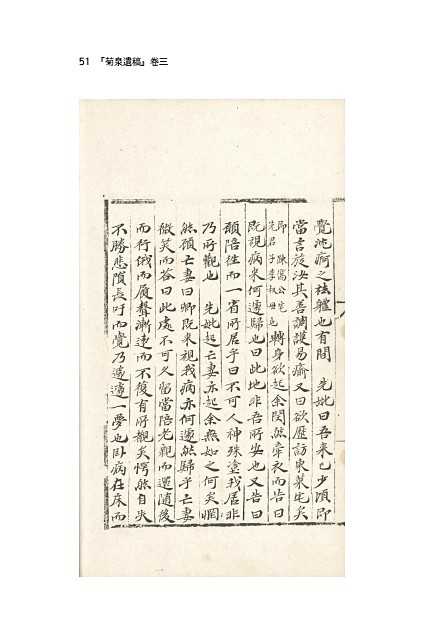 51 『菊泉遺稿』 卷三
覺沈痾之祛軆也有間 先妣曰吾來已少頃卽
當言旋汝其善調護易瘉又曰欲歷訪東菜宅矣
卽陳寫公宅先君子季叔母也轉身欲起余閔然牽衣而告曰
旣視病來何遽歸也曰此地非吾所安也又告曰
願陪往而一省所居乎曰不可人神殊塗我居非
乃所觀也 先妣起亡妻亦起余無如之何矣惘
然顧亡妻曰卿旣來視我病亦何遽然歸乎亡妻
微笑而答曰此處不可久留當陪老親而還隨後
而行俄而履聲漸遠而不復有所覩矣愕然自失
不勝悲隕長吁而覺乃蘧蘧一夢也臥病在床而